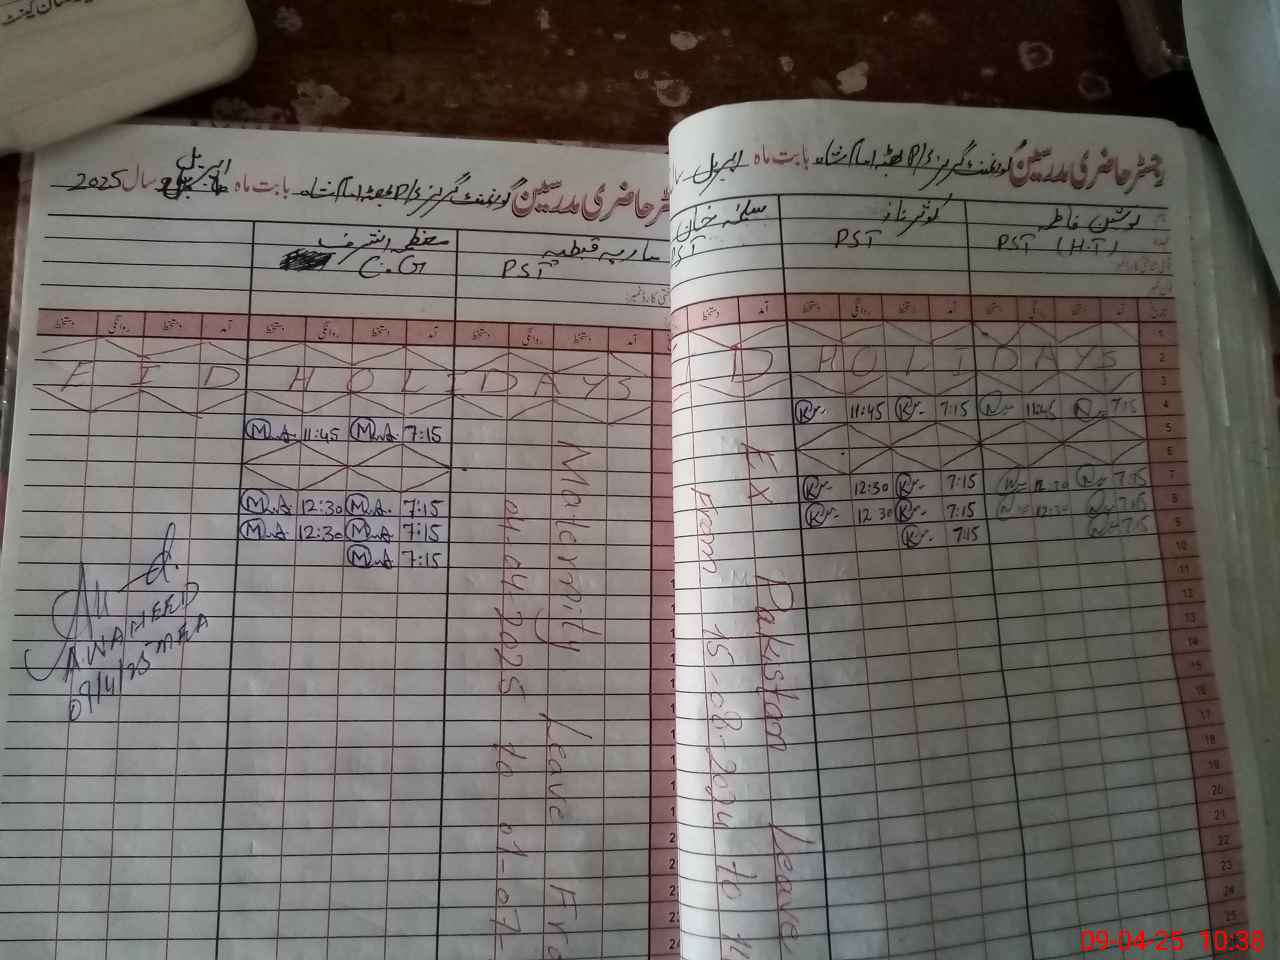 رجسٹر حاضری مدرسین گورنمنٹ گرلز P/S بابت ماہ اپریل سال
نوشین فاطمہ
PST (H.T)
کوثر ناز
PST
سلمہ خان
PST
آمد دستخط روانگی دستخط آمد دستخط روانگی دستخط آمد دستخط
1
2
3
4
5
6
7
8
9
10
11
12
13
14
15
16
17
18
19
20
21
22
23
24
25
D HOLIDAYS
11:45 7:15 11:45 7:15
12:30 7:15 12:30 7:15
12:30 7:15 12:30 7:15
7:15 7:15
Ex Pakistan Leave
From 15-08-2024 to 14
حاضری مدرسین گورنمنٹ گرلز P/S بابت ماہ اپریل سال 2025
ماریہ قبطیہ
PST
معظمہ اشرف
C.G
آمد دستخط روانگی دستخط آمد دستخط روانگی دستخط آمد دستخط روانگی دستخط
EID HOLIDAYS
M.A. 11:45 M.A. 7:15
M.A. 12:30 M.A. 7:15
M.A. 12:30 M.A. 7:15
M.A. 7:15
Maternity Leave Fro
04-04-2025 to 01-07-
A.WAHEED
MEA
09/4/25
09-04-25 10:38